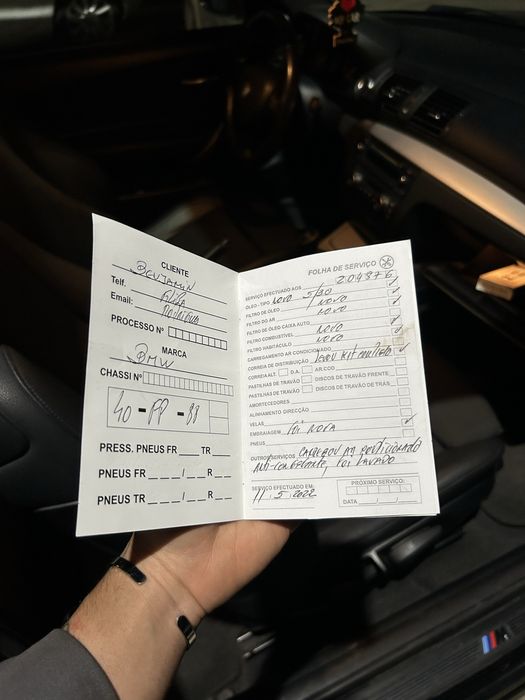 CLIENTE
BENJAMIN
Telf.
Email: Rodrigues
PROCESSO Nº
MARCA
BMW
CHASSI Nº
40-PP-99
PRESS. PNEUS FR ___ TR ___
PNEUS FR ___/__ R __
PNEUS TR ___/__ R __
FOLHA DE SERVIÇO
SERVIÇO EFECTUADO AOS 204876
ÓLEO - TIPO NOVO 5/30
FILTRO DE ÓLEO NOVO
FILTRO DO AR NOVO
FILTRO DE ÓLEO CAIXA AUTO
FILTRO COMBUSTÍVEL NOVO
FILTRO HABITÁCULO NOVO
CARREGAMENTO AR CONDICIONADO
CORREIA DE DISTRIBUIÇÃO levou Kit completo
CORREIA ALT. D.A. AR.COO
PASTILHAS DE TRAVÃO DISCOS DE TRAVÃO FRENTE
PASTILHAS DE TRAVÃO DISCOS DE TRAVÃO DE TRÁS
AMORTECEDORES
ALINHAMENTO DIRECÇÃO
VELAS
EMBRAIAGEM foi NOVA
PNEUS
OUTROS SERVIÇOS CARREGOU AR condicionado
foi LAVADO
SERVIÇO EFECTUADO EM:
11.5.2022
PRÓXIMO SERVIÇO:
DATA ___/___/___